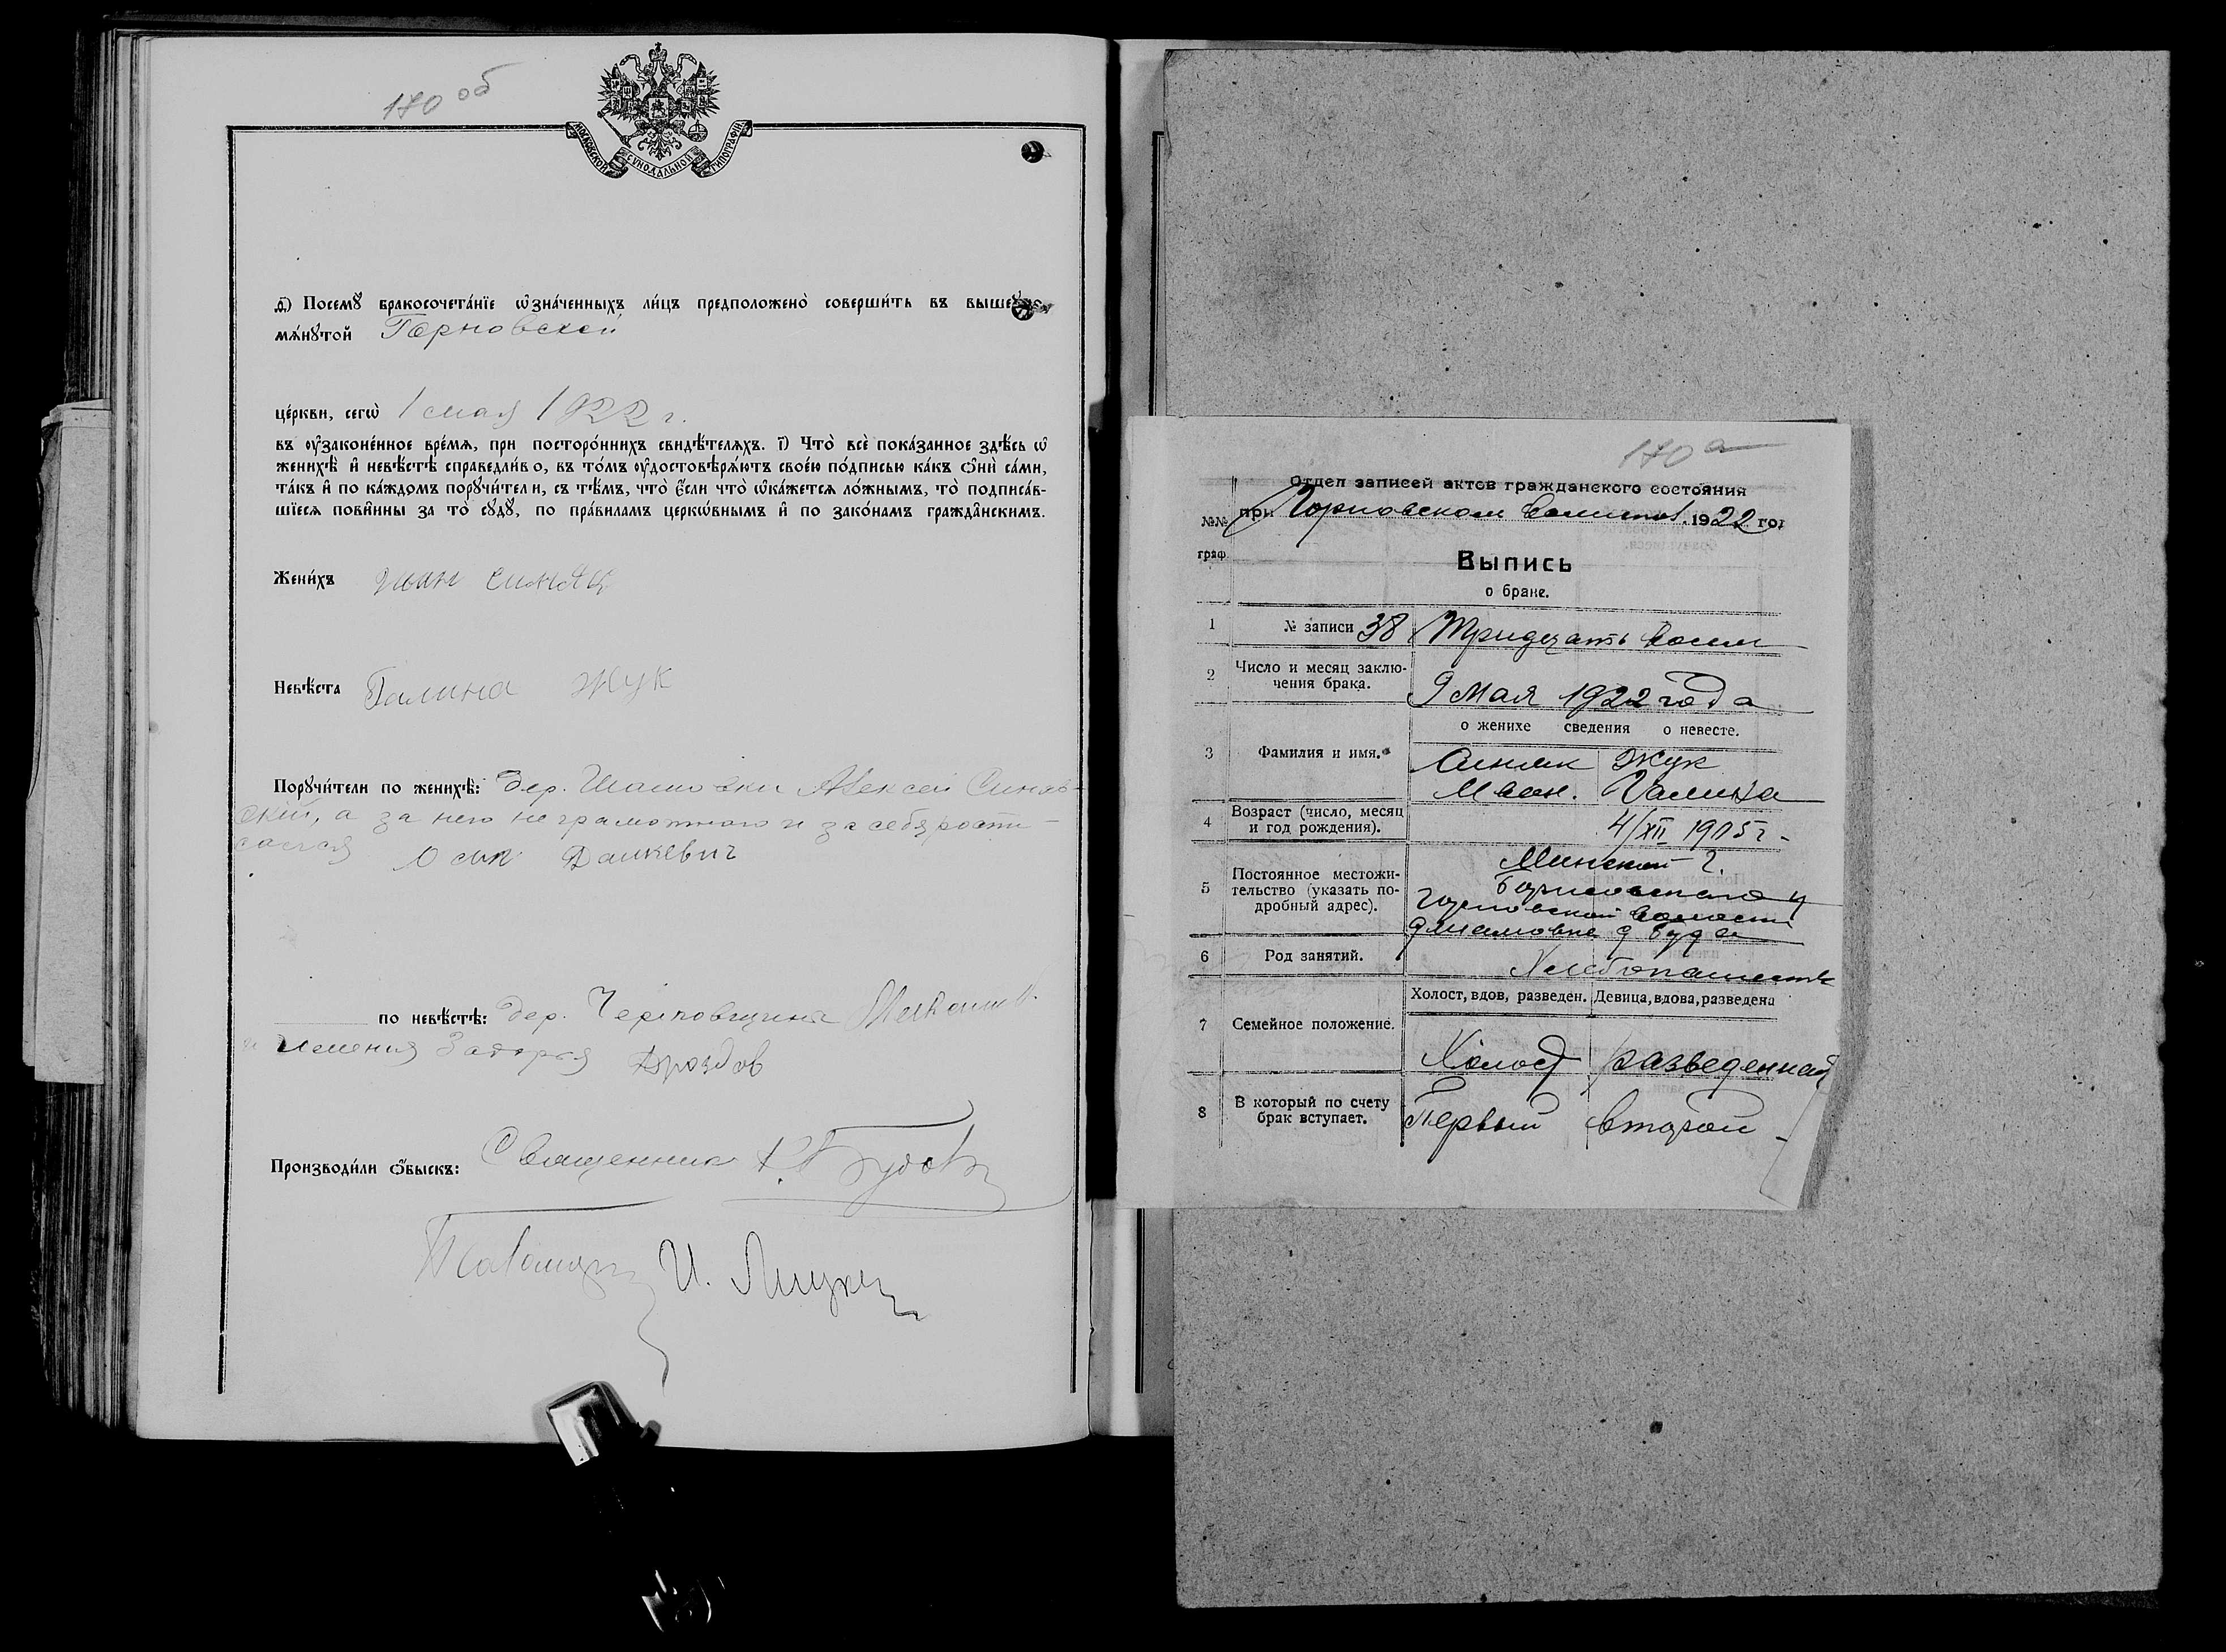 170 об
МОСКОВСКОЙ СѴНОДАЛЬНОЙ ТИПОГРАФІИ
д҃і) Посемꙋ̀ бракосочета́нїе ѡ҆зна́ченныхъ ли́цъ предположено̀ соверши́ть въ вышеꙋпо-
мѧ́нꙋтой Гарновской
це́ркви, сегѡ̀ 1 мая 1922 г.
въ ᲂу҆законе́нное вре́мѧ, при посторо́ннихъ свидѣ́телѧхъ. і҃) Что̀ всѐ пока́занное здѣ́сь ѡ҆
женихѣ̀ и҆ невѣ́стѣ справедли́во, въ то́мъ ᲂу҆достовѣрѧ́ютъ свое́ю по́дписью ка́къ ѻ҆нѝ са́ми,
та́къ и҆ по ка́ждомъ порꙋчи́тели, съ тѣ́мъ, что̀ є҆́сли что̀ ѡ҆ка́жетсѧ ло́жнымъ, то̀ подписа́в-
шїесѧ пови́нны за то̀ сꙋдꙋ̀, по пра́виламъ церкѡ́внымъ и҆ по зако́намъ гражда́нскимъ.
Жени́хъ Иван Синяк
Невѣ́ста Галина Жук
Порꙋчи́тели по женихѣ̀: Дер. Шамовки Алексей Синяв-
ский, а за него неграмотного и за себя роспи-
сался Осип Дашкевич
по невѣ́стѣ: дер.
и имения Загорья Дроздов
Производи́ли ѻ҆́быскъ: Священник
И.
170 а
Отдел записей актов гражданского состояния
при Горновском Волисполк. 1922 год
№№ граф.
Выпись
о браке.
1 № записи 38 Тридцать восем
2 Число и месяц заклю-
чения брака. 9 Мая 1922 года
о женихе сведения о невесте.
3 Фамилия и имя. Синяк Жук
Иван. Галина
4 Возраст (число, месяц
и год рождения). 4/XII 1905 г.
5 Постоянное местожи-
тельство (указать по-
дробный адрес). Минской г.
Борисовского у
Горновской волости
д Шамовке д Буда
6 Род занятий. Хлебопашеств
Холост, вдов, разведен. Девица, вдова, разведена
7 Семейное положение. Холост разведенная
8 В который по счету
брак вступает. Первый второй